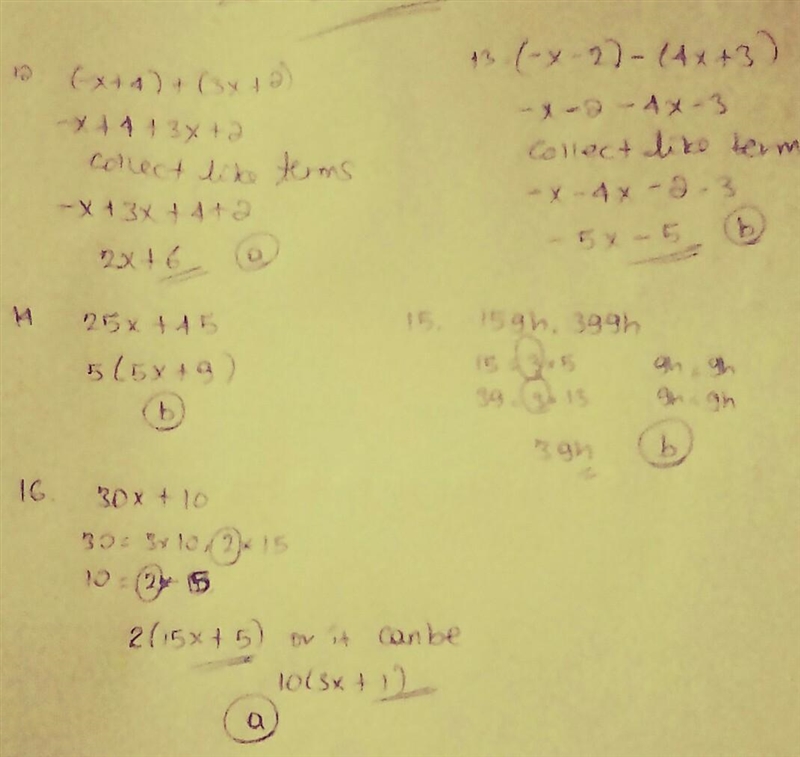 12 (-x+4) + (3x+2)
-x+4+3x+2
collect like terms
-x+3x+4+2
2x+6 (a)
13. (-x-2) - (4x+3)
-x-2-4x-3
collect like term
-x-4x-2-3
-5x-5 (b)
14 25x+45
5(5x+9)
(b)
15. 15gh, 39gh
15 = 3×5 gh = gh
39 = 3×13 gh = gh
3gh (b)
16. 30x + 10
30 = 3×10, 2×15
10 = 2×5
2(15x+5) or it can be
10(3x+1)
(a)